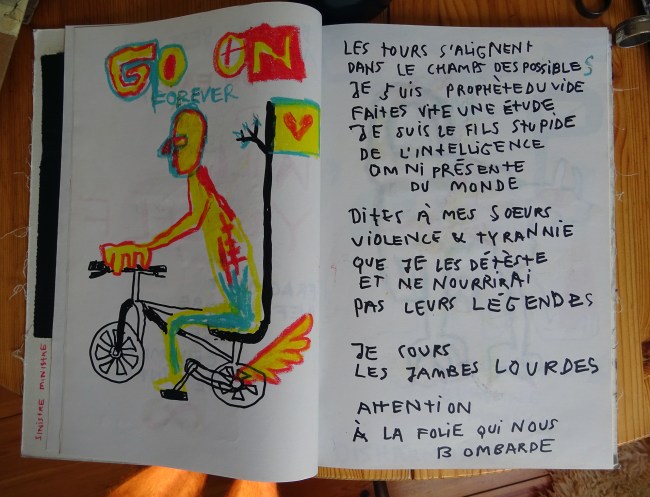 GO ON
FOREVER
SINISTRE MINISTRE
LES TOURS S'ALIGNENT
DANS LE CHAMPS DES POSSIBLES
JE SUIS PROPHÈTE DU VIDE
FAITES VITE UNE ÉTUDE
JE SUIS LE FILS STUPIDE
DE L'INTELLIGENCE
OMNIPRÉSENTE
DU MONDE
DITES À MES SOEURS
VIOLENCE & TYRANNIE
QUE JE LES DÉTÈSTE
ET NE NOURRIRAI
PAS LEURS LÉGENDES
JE COURS
LES JAMBES LOURDES
ATTENTION
À LA FOLIE QUI NOUS
BOMBARDE